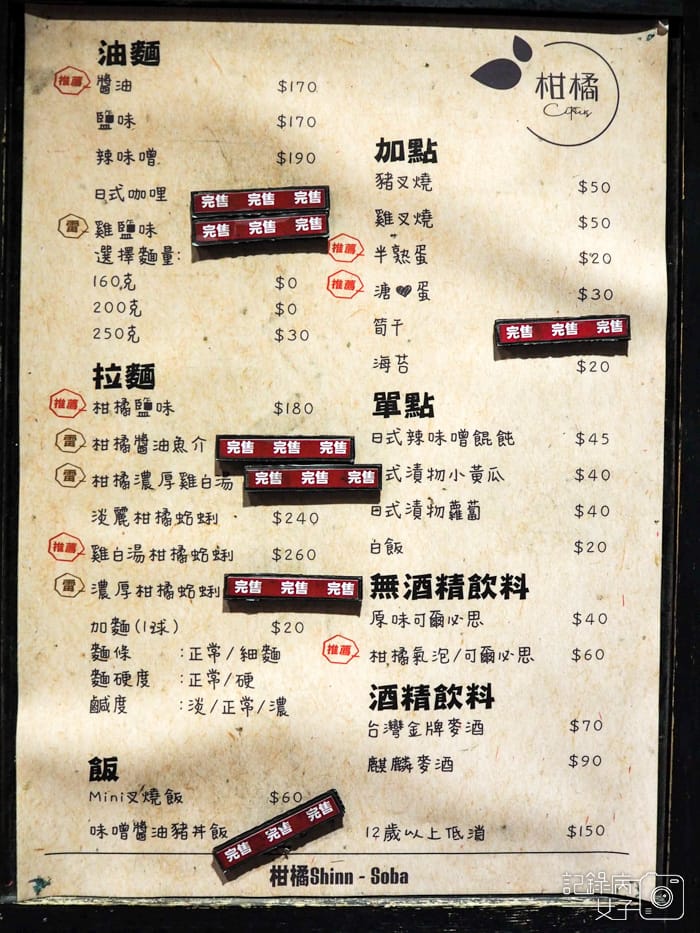 油麵
推薦 醬油 $170
鹽味 $170
辣味噌 $190
日式咖哩 完售 完售 完售
雷 雞鹽味 完售 完售 完售
選擇麵量:
160克 $0
200克 $0
250克 $30
拉麵
推薦 柑橘鹽味 $180
雷 柑橘醬油魚介 完售 完售 完售
雷 柑橘濃厚雞白湯 完售 完售 完售
淡麗柑橘蛤蜊 $240
推薦 雞白湯柑橘蛤蜊 $260
雷 濃厚柑橘蛤蜊 完售 完售 完售
加麵(1球) $20
麵條 :正常/細麵
麵硬度 :正常/硬
鹹度 :淡/正常/濃
飯
Mini叉燒飯 $60
味噌醬油豬丼飯 完售 完售 完售
柑橘
Citrus
加點
豬叉燒 $50
雞叉燒 $50
推薦 半熟蛋 $20
推薦 溏♥蛋 $30
筍干 完售 完售 完售
海苔 $20
單點
日式辣味噌餛飩 $45
式漬物小黃瓜 $40
日式漬物蘿蔔 $40
白飯 $20
無酒精飲料
原味可爾必思 $40
推薦 柑橘氣泡/可爾必思 $60
酒精飲料
台灣金牌麥酒 $70
麒麟麥酒 $90
12歲以上低消 $150
柑橘Shinn - Soba
記錄病
女子